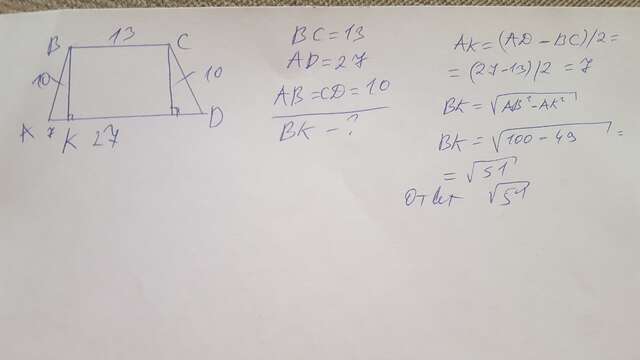 13
B
C
10
10
A
7
K
27
D
BC=13
AD=27
AB=CD=10
BK-?
AK=(AD-BC)/2=
=(27-13)/2=7
BK=√AB²-AK²
BK=√100-49=
=√51
Ответ √51